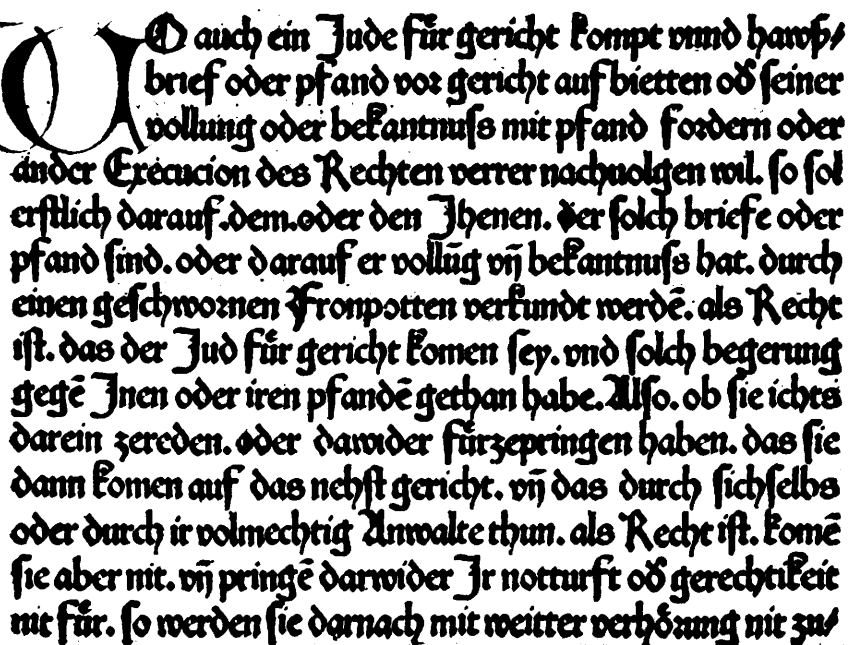 WO auch ein Jude fuͤr gericht kompt vnnd hawſz/
brief oder pfand voꝛ gericht auf bietten od̕ ſeiner
vollung oder bekantnuſs mit pfand foꝛdern oder
ander Execucion des Rechten verrer nachuolgen wil. ſo ſol
erſtlich darauf.dem.oder den Jhenen. der ſolch briefe oder
pfand ſind. oder darauf er vollūg vn̄ bekantnuſs hat. durch
einen geſchwoꝛnen Fronpotten verkundt werdē. als Recht
iſt. das der Jud fuͤr gericht komen ſey. vnd ſolch begerung
gegē Jnen oder iren pfandē gethan habe. Alſo. ob ſie ichts
darein zereden. oder dawider fuͤrzepringen haben. das ſie
dann komen auf das nehſt gericht. vn̄ das durch ſichſelbs
oder durch ir volmechtig Anwalte thun. als Recht iſt. komē
ſie aber nit. vn̄ pringē darwider Jr notturft od̕ gerechtikeit
nit fuͤr. ſo werden ſie darnach mit weitter verhoͤꝛung nit zu/